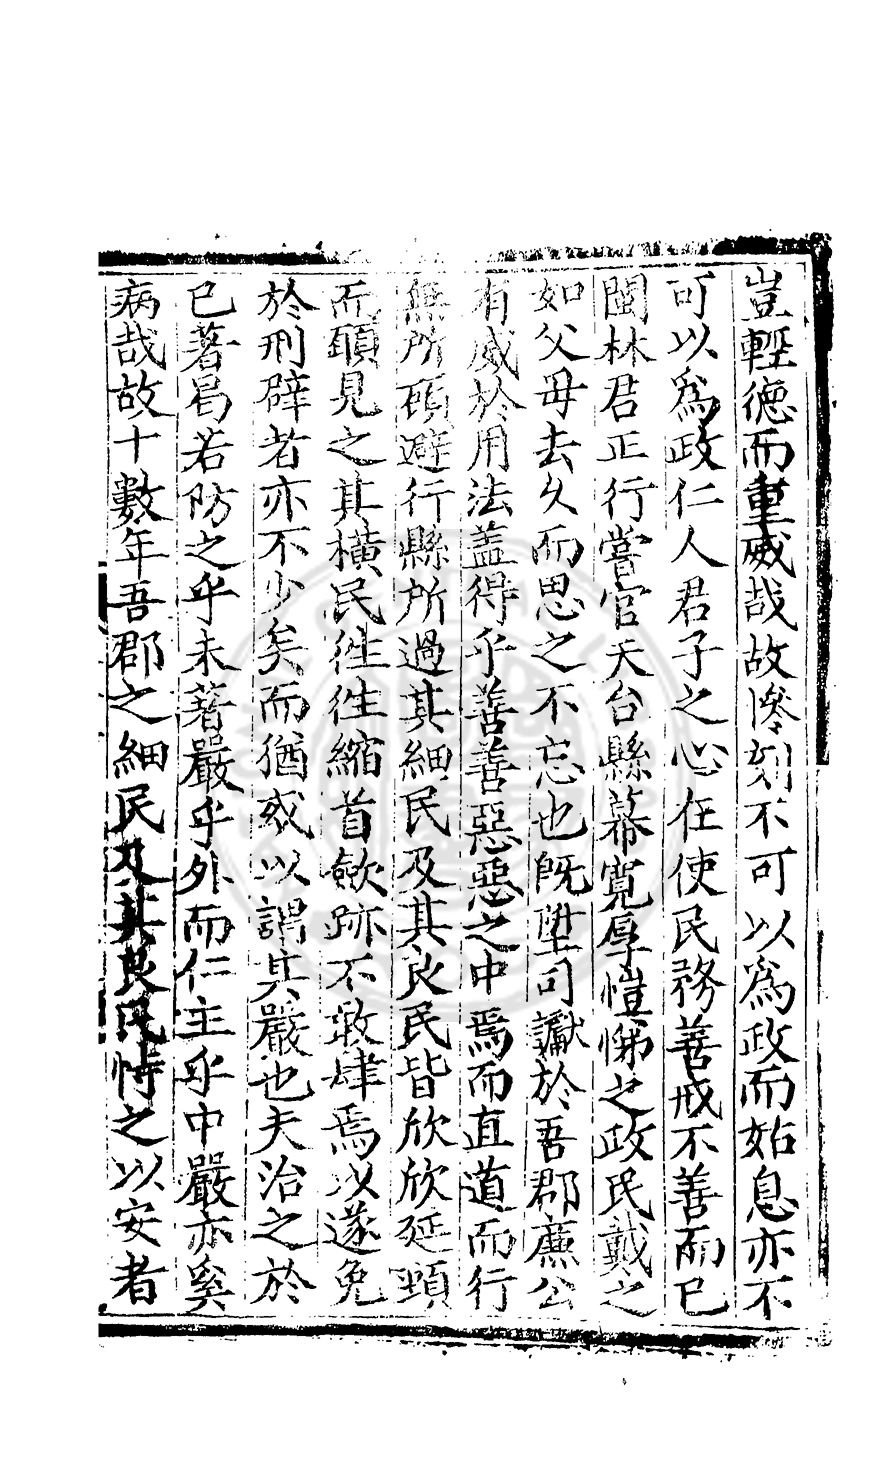 豈輕德而重威哉故慘刻不可以爲政而姑息亦不
可以爲政仁人君子之心在使民務善戒不善而已
閩林君正行嘗官天台縣幕寬厚愷悌之政民戴之
如父母去久而思之不忘也旣陞司讞於吾郡廉公
有威於用法蓋得乎善善惡惡之中焉而直道而行
無所顧避行縣所過其細民及其良民皆欣欣延頸
而願見之其橫民徃徃縮首歛跡不敢肆焉以遂免
於刑辟者亦不少矣而猶或以謂其嚴也夫治之於
已著曷若防之乎未著嚴乎外而仁主乎中嚴亦奚
病哉故十數年吾郡之細民及其良民恃之以安者